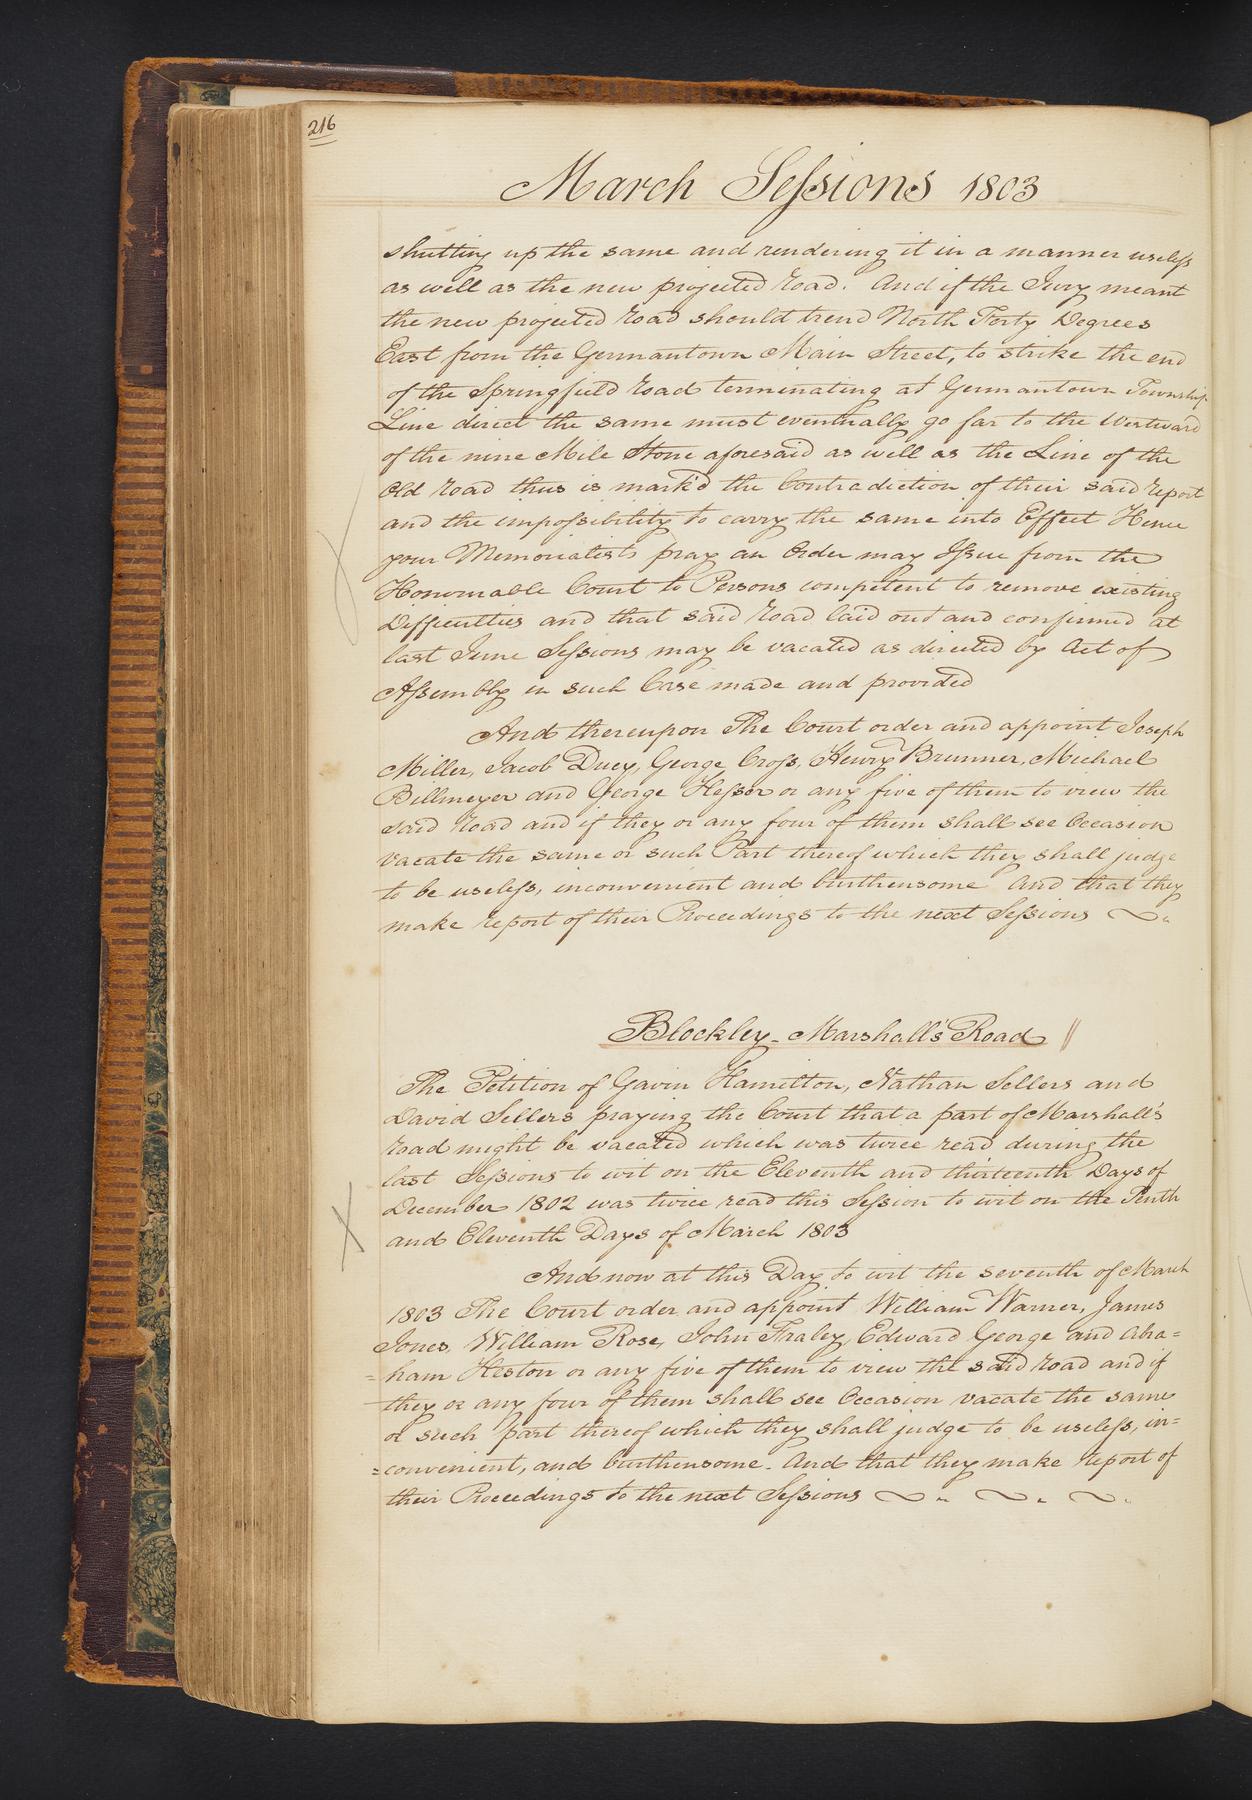 216
March Sessions 1803
shutting up the same and rendering it in a manner useless
as well as the new projected road. And if the Jury meant
the new projected road should trend North Forty Degrees
East from the Germantown Main Street, to strike the end
of the Springfield road terminating at Germantown Township
Line direct the same must eventually go far to the Westward
of the nine Mile Stone aforesaid as well as the Line of the
Old road thus is mark'd the Contradiction of their said report
and the impossibility to carry the same into Effect Hence
your Memorialists pray an Order may Issue from the
Honourable Court to Persons competent to remove existing
Difficulties and that said road laid out and confirmed at
last June Sessions may be vacated as directed by Act of
Assembly in such Case made and provided
And thereupon The Court order and appoint Joseph
Miller, Jacob Duey, George Cross, Henry Brunner, Michael
Billmeyer and George Hesser or any five of them to view the
said road and if they or any four of them shall see Occasion
vacate the same or such Part thereof which they shall judge
to be useless, inconvenient and burthensome And that they
make report of their Proceedings to the next Sessions
Blockley - Marshall's Road
The Petition of Gavin Hamilton, Nathan Sellers and
David Sellers praying the Court that a part of Marshall's
road might be vacated which was twice read during the
last Sessions to wit on the Eleventh and thirteenth Days of
December 1802 was twice read this Session to wit on the Tenth
and Eleventh Days of March 1803
And now at this Day to wit the seventh of March
1803 The Court order and appoint William Warner, James
Jones, William Rose, John Fraley, Edward George and Abra=
=ham Heston or any five of them to view the said road and if
they or any four of them shall see Occasion vacate the same
or such part thereof which they shall judge to be useless, in=
=convenient, and burthensome. And that they make report of
their Proceedings to the next Sessions